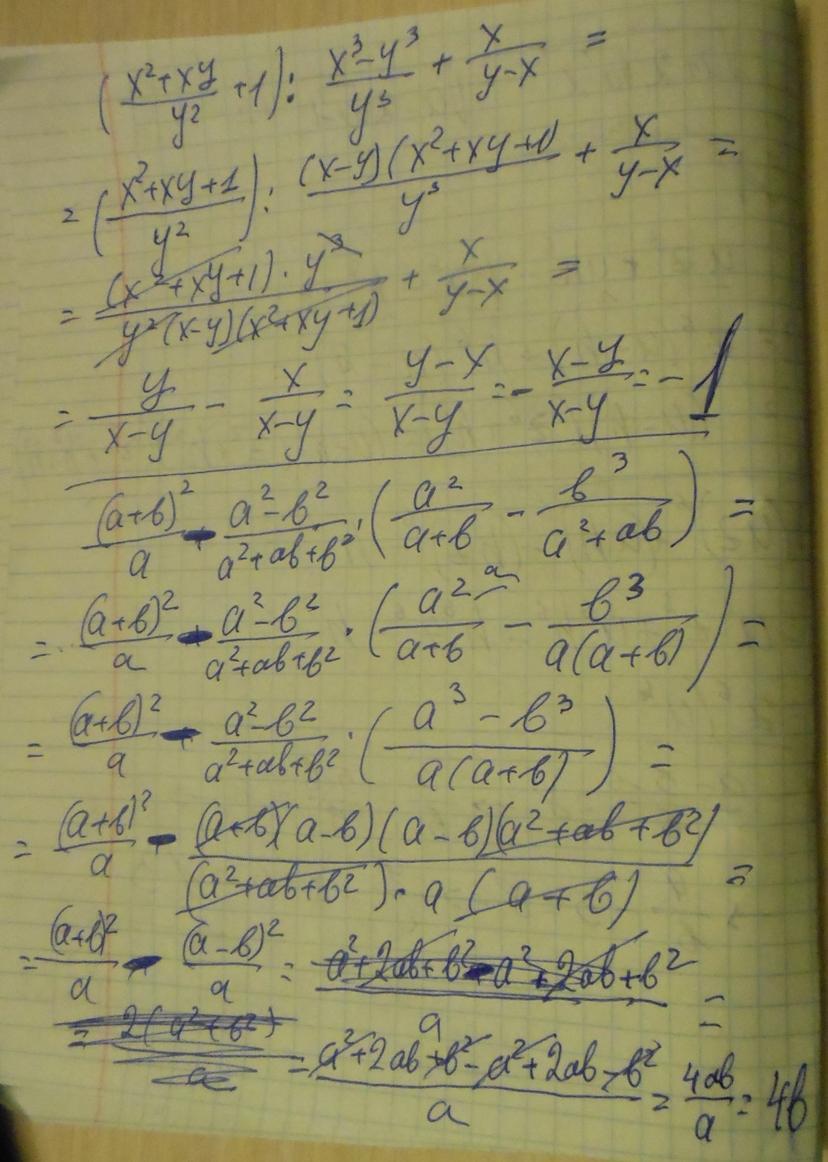 ((x²+xy)/y² + 1) : (x³-y³)/y³ + x/(y-x) =
= ((x²+xy+1)/y²) : ((x-y)(x²+xy+1))/y³ + x/(y-x) =
= ((x²+xy+1)·y³)/(y²(x-y)(x²+xy+1)) + x/(y-x) =
= y/(x-y) - x/(x-y) = (y-x)/(x-y) = - (x-y)/(x-y) = -1
(a+b)²/a - (a²-b²)/(a²+ab+b²) · (a²/(a+b) - b³/(a²+ab)) =
= (a+b)²/a - (a²-b²)/(a²+ab+b²) · (a² a/(a+b) - b³/(a(a+b))) =
= (a+b)²/a - (a²-b²)/(a²+ab+b²) · ((a³-b³)/(a(a+b))) =
= (a+b)²/a - ((a+b)(a-b)(a-b)(a²+ab+b²))/((a²+ab+b²)·a(a+b)) =
= (a+b)²/a - (a-b)²/a = (a²+2ab+b²-a²+2ab+b²)/a =
= 2(a²+b²)/a = (a²+2ab+b²-a²+2ab-b²)/a = 4ab/a = 4b